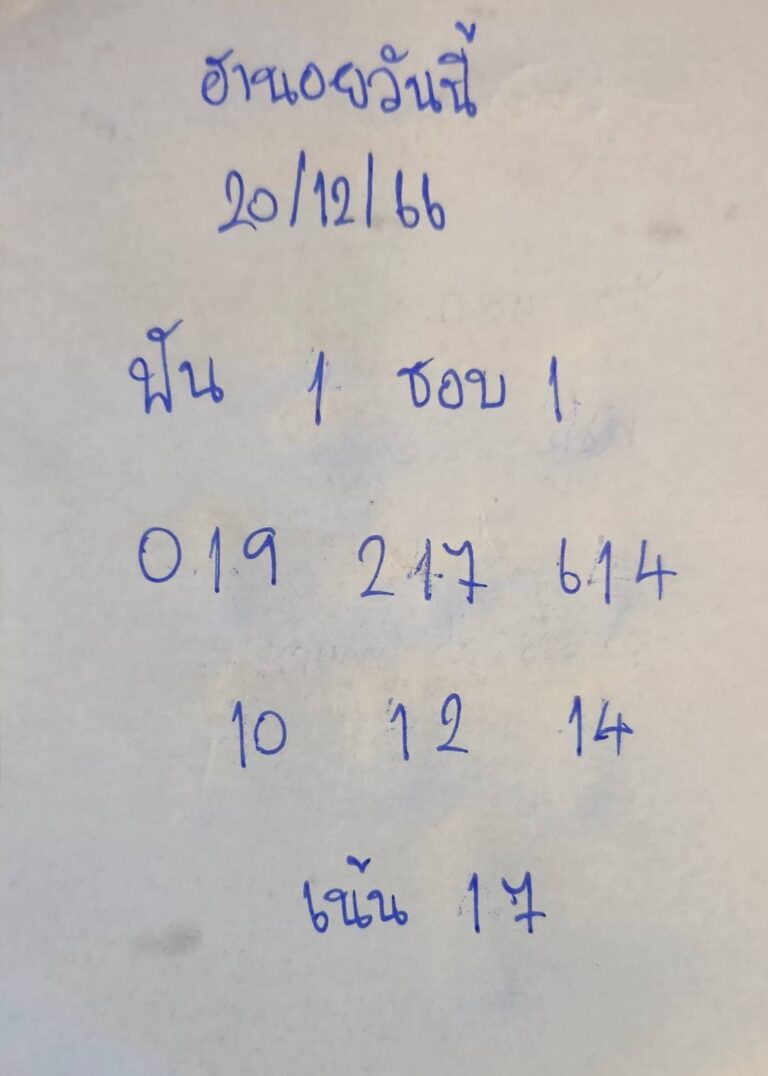 ฮานอยวันนี้
20/12/66
ฟัน 1 ชอบ 1
019 217 614
10 12 14
เน้น 17